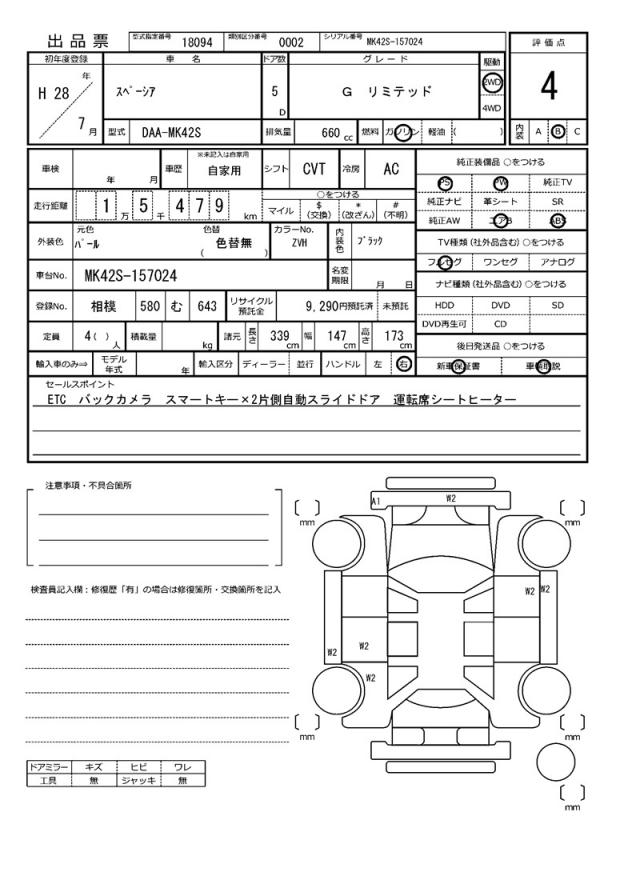 出品票 型式指定番号 18094 類別区分番号 0002 シリアル番号 MK42S-157024
評価点
初年度登録 車名 ドア数 グレード 駆動
H 28 年 7 月
ｽﾍﾟｰｼｱ 5 D G リミテッド
2WD
4WD
4
型式 DAA-MK42S 排気量 660 cc 燃料 ガソリン 軽油 ( )
内装 A B C
車検 年 月 車歴 ※未記入は自家用 自家用 シフト CVT 冷房 AC
走行距離 1 万 5 千 4 7 9 km
○をつける
マイル $(交換) *(改ざん) #(不明)
外装色 元色 ﾊﾟｰﾙ 色替 ( 色替無 ) カラーNo. ZVH 内装色 ﾌﾞﾗｯｸ
車台No. MK42S-157024 名変期限 月 日
登録No. 相模 580 む 643 リサイクル預託金 9,290円預託済 未預託
定員 4( ) 人 積載量 kg 諸元 長さ 339 cm 幅 147 cm 高さ 173 cm
輸入車のみ⇒ モデル年式 年 輸入区分 ディーラー 並行 ハンドル 左 右
純正装備品 ○をつける
PS PW 純正TV
純正ナビ 革シート SR
純正AW エアB ABS
TV種類 (社外品含む) ○をつける
フルセグ ワンセグ アナログ
ナビ種類 (社外品含む) ○をつける
HDD DVD SD
DVD再生可 CD
後日発送品 ○をつける
新車保証書 車輌取説
セールスポイント
ETC バックカメラ スマートキー×2片側自動スライドドア 運転席シートヒーター
注意事項・不具合箇所
検査員記入欄：修復歴「有」の場合は修復箇所・交換箇所を記入
A1 W2
mm mm
W2 W2
W2 W2
W2
mm mm
mm
ドアミラー キズ ヒビ ワレ
工具 無 ジャッキ 無